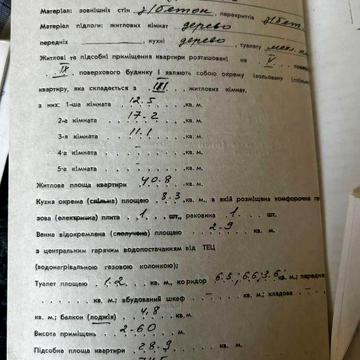 Матеріал: зовнішніх стін з/бетон, перекриттів з/бет
Матеріал підлоги: житлових кімнат дерево
передніх , кухні дерево, туалету
Житлові та підсобні приміщення квартири розташовані на V
IX поверхового будинку і являють собою окрему ізольовану
квартиру, яка складається з III житлових кімнат,
з них: 1-ша кімната 12.5 кв. м.
2-га кімната 17.2 кв. м.
3-я кімната 11.1 кв. м.
4-а кімната - кв. м.
5-а кімната - кв. м.
Житлова площа квартири 40.8 кв. м.
Кухня окрема (спільна) площею 8.3 кв. м, в якій розміщена комфорочна га-
зова (електрична) плита 1 шт., раковина 1 шт.
Ванна відокремлена (сполучена) площею 2.9 кв. м
з центральним гарячим водопостачанням від ТЕЦ
(водонагрівальною газовою колонкою);
Туалет площею 1.2 кв. м, коридор 6.5; 6.6; 3.6 кв. м; передня
кв. м; вбудований шкаф - кв. м; кладова
кв. м; балкон (лоджія) 4.8 кв. м.
Висота приміщень 2.60 м.
Підсобна площа квартири 28.9 кв. м.